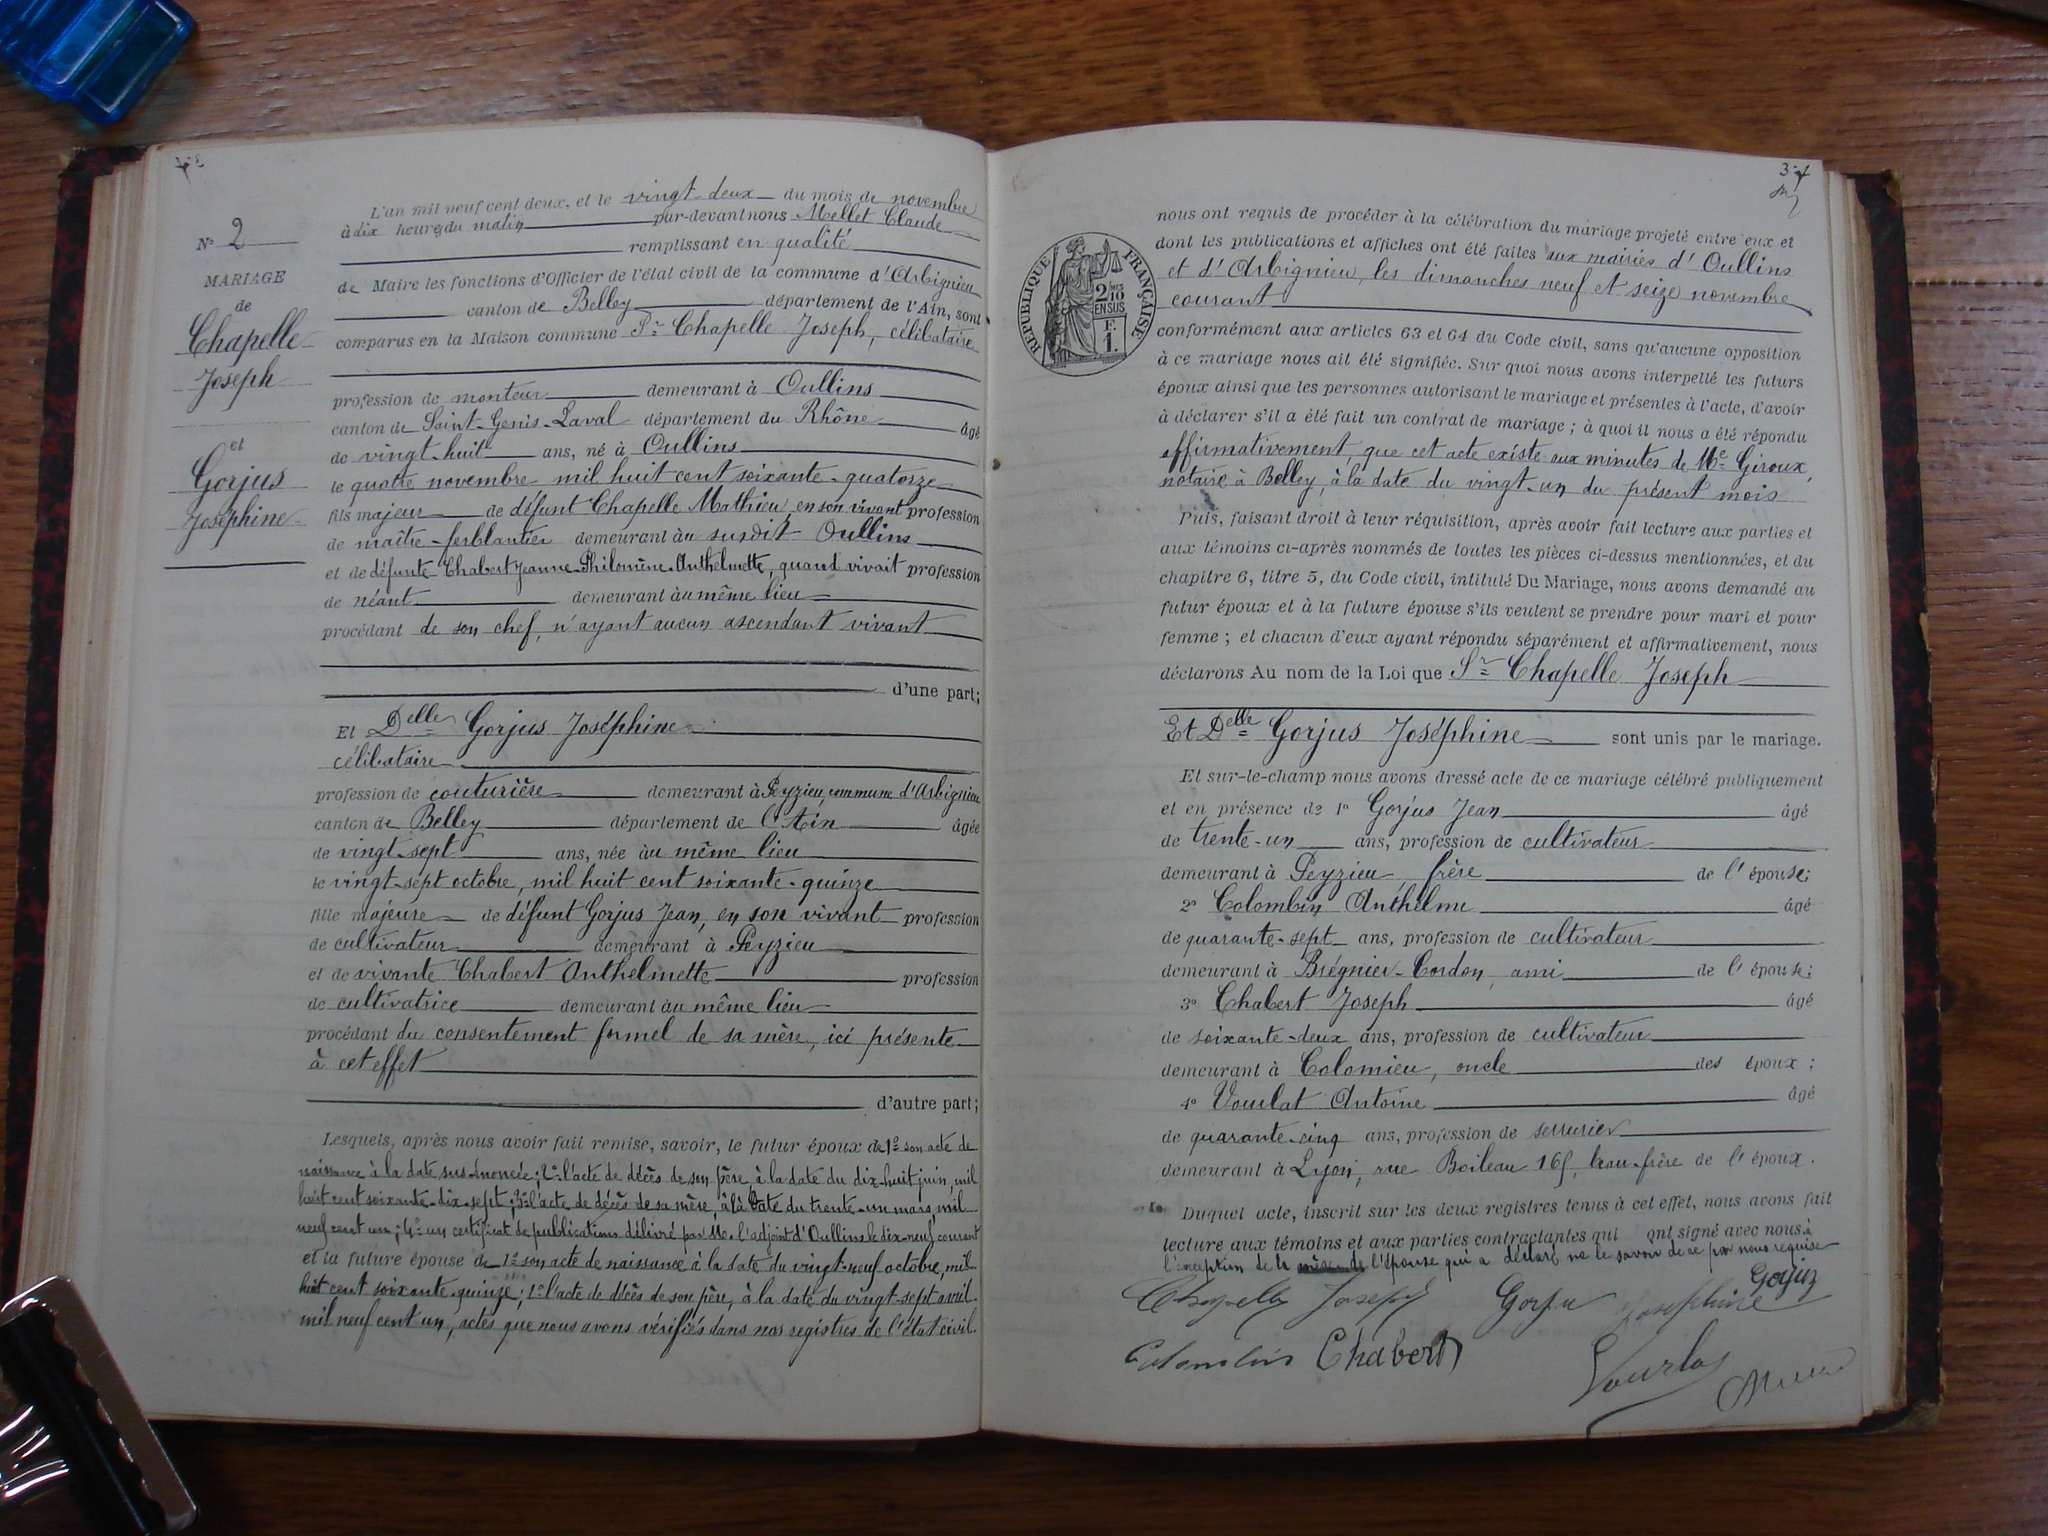 N° 2
MARIAGE
de
Chapelle
Joseph
et
Gorjus
Joséphine
L'an mil neuf cent deux, et le vingt-deux du mois de novembre
à dix heures du matin par-devant nous Mellet Claude
remplissant en qualité
de Maire les fonctions d'Officier de l'état civil de la commune d'Arbignieu
canton de Belley département de l'Ain, sont
comparus en la Maison commune Sr Chapelle Joseph, célibataire
profession de monteur demeurant à Oullins
canton de Saint-Genis-Laval département du Rhône âgé
de vingt-huit ans, né à Oullins
le quatre novembre mil huit cent soixante-quatorze
fils majeur de défunt Chapelle Mathieu, en son vivant profession
de maître-ferblantier demeurant au susdit Oullins
et de défunte Chabert Jeanne-Philomène-Anthelmette, quand vivait profession
de néant demeurant au même lieu
procédant de son chef, n'ayant aucun ascendant vivant
d'une part;
Et Delle Gorjus Joséphine
célibataire
profession de couturière demeurant à Peyzieu, commune d'Arbignieu
canton de Belley département de l'Ain âgée
de vingt-sept ans, née au même lieu
le vingt-sept octobre, mil huit cent soixante-quinze
fille majeure de défunt Gorjus Jean, en son vivant profession
de cultivateur demeurant à Peyzieu
et de vivante Chabert Anthelmette profession
de cultivatrice demeurant au même lieu
procédant du consentement formel de sa mère, ici présente
à cet effet
d'autre part;
Lesquels, après nous avoir fait remise, savoir, le futur époux de 1° son acte de
naissance à la date sus-énoncée; 2° l'acte de décès de son père, à la date du dix-huit juin, mil
huit cent soixante-dix-sept; 3° l'acte de décès de sa mère, à la date du trente-un mars, mil
neuf cent un; 4° un certificat de publications délivré par M. l'adjoint d'Oullins le dix-neuf courant
et la future épouse de 1° son acte de naissance à la date du vingt-neuf octobre, mil
huit cent soixante-quinze; 2° l'acte de décès de son père, à la date du vingt-sept avril
mil neuf cent un, actes que nous avons vérifiés dans nos registres de l'état civil.
RÉPUBLIQUE FRANÇAISE
2/10 EN SUS
F. 1.
nous ont requis de procéder à la célébration du mariage projeté entre eux et
dont les publications et affiches ont été faites aux mairies d'Oullins
et d'Arbignieu, les dimanches neuf et seize novembre
courant
conformément aux articles 63 et 64 du Code civil, sans qu'aucune opposition
à ce mariage nous ait été signifiée. Sur quoi nous avons interpellé les futurs
époux ainsi que les personnes autorisant le mariage et présentes à l'acte, d'avoir
à déclarer s'il a été fait un contrat de mariage; à quoi il nous a été répondu
affirmativement, que cet acte existe aux minutes de Me Giroux,
notaire à Belley, à la date du vingt-un du présent mois
Puis, faisant droit à leur réquisition, après avoir fait lecture aux parties et
aux témoins ci-après nommés de toutes les pièces ci-dessus mentionnées, et du
chapitre 6, titre 5, du Code civil, intitulé Du Mariage, nous avons demandé au
futur époux et à la future épouse s'ils veulent se prendre pour mari et pour
femme; et chacun d'eux ayant répondu séparément et affirmativement, nous
déclarons Au nom de la Loi que Sr Chapelle Joseph
Et Delle Gorjus Joséphine sont unis par le mariage.
Et sur-le-champ nous avons dressé acte de ce mariage célébré publiquement
et en présence de 1° Gorjus Jean âgé
de trente-un ans, profession de cultivateur
demeurant à Peyzieu frère de l'épouse;
2° Colombin Anthelme âgé
de quarante-sept ans, profession de cultivateur
demeurant à Brégnier-Cordon, ami de l'épouse;
3° Chabert Joseph âgé
de soixante-deux ans, profession de cultivateur
demeurant à Colomieu, oncle des époux;
4° Vourlat Antoine âgé
de quarante-cinq ans, profession de serrurier
demeurant à Lyon, rue Boileau 165, beau-frère de l'époux.
Duquel acte, inscrit sur les deux registres tenus à cet effet, nous avons fait
lecture aux témoins et aux parties contractantes qui ont signé avec nous à
l'exception de la mère de l'épouse qui a déclaré ne le savoir de ce par nous requise
Chapelle Joseph Gorju Josephine Gorjuz
Colombin Chabert Vourlat